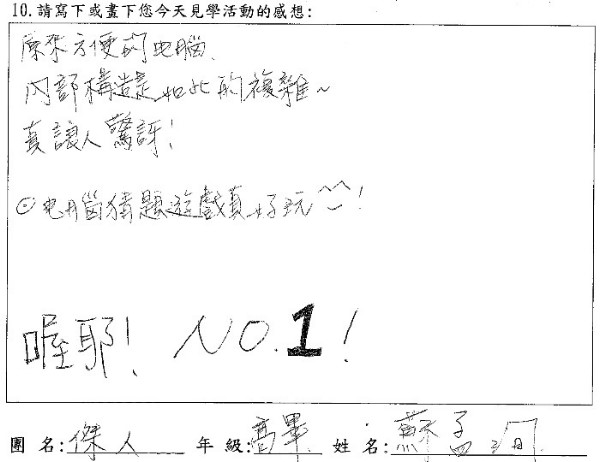 10.請寫下或畫下您今天見學活動的感想:
原來方便的电腦、
內部構造是如此的複雜~
真讓人驚訝!
⊙电腦猜題遊戲真好玩^^!
喔耶! NO.1!
團 名:傑人 年 級:高畢 姓 名:蘇孟